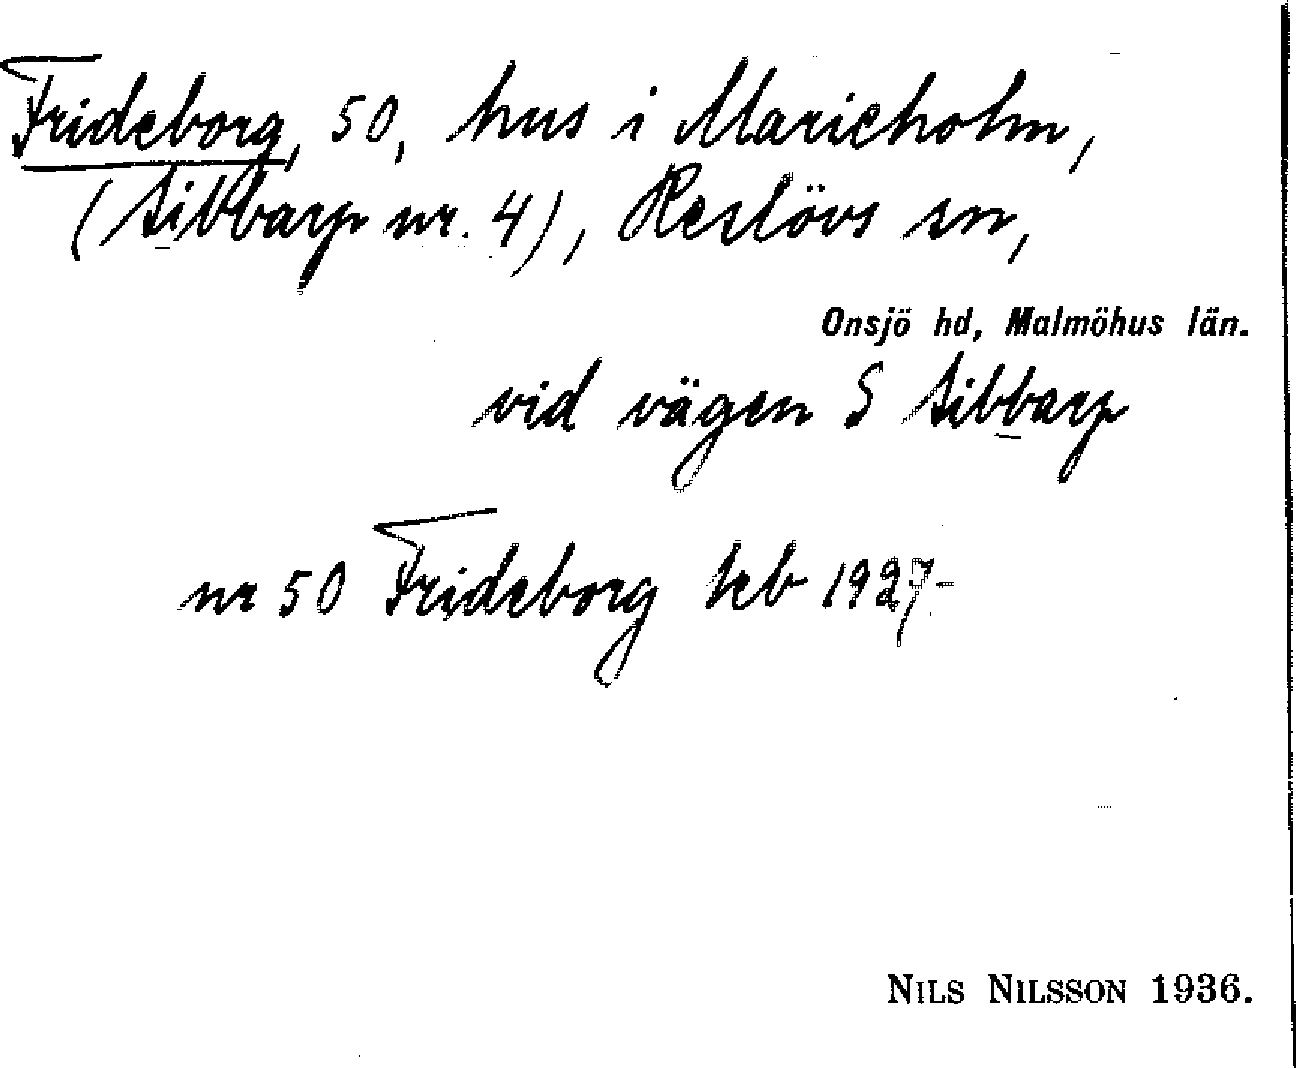 Frideborg, 50, hus i Marieholm,
(Sibbarp nr. 4), Reslövs sn,
Onsjö hd, Malmöhus län.
vid vägen S Sibbarp
nr 50 Frideborg teb 1927-
NILS NILSSON 1936.